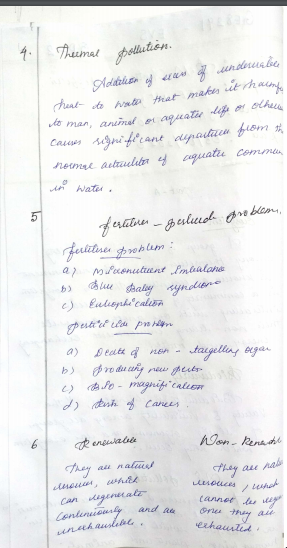 4. Thermal pollution.
Addition of excess of undesirable
heat to water that makes it harmful
to man, animal or aquatic life or otherwise
causes significant departure from th
normal activities of aquatic commun
in water.
5 fertilizer - pesticide problem.
fertilizer problem :
a) Micronutrient imbalance
b) Blue Baby syndrome
c) Eutrophication
pesticide problem
a) Death of non - targetting organ
b) Producing new pests
c) Bio - magnification
d) Risk of cancer.
6 Renewable Non - Renewabl
They are natural They are natu
resources, which resources, which
can regenerate cannot be rege
continuously and are once they are
inexhaustible. exhausted.